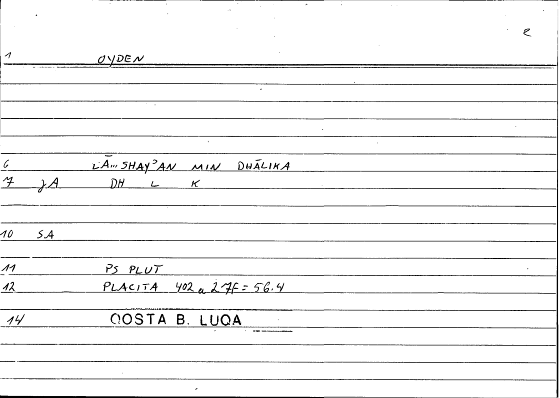 2
1 OYDEN
6 LĀ... SHAYʾAN MIN DHĀLIKA
7 JA DH L K
10 SA
11 PS PLUT
12 PLACITA 402 a 27f = 56.4
14 QOSTA B. LUQA